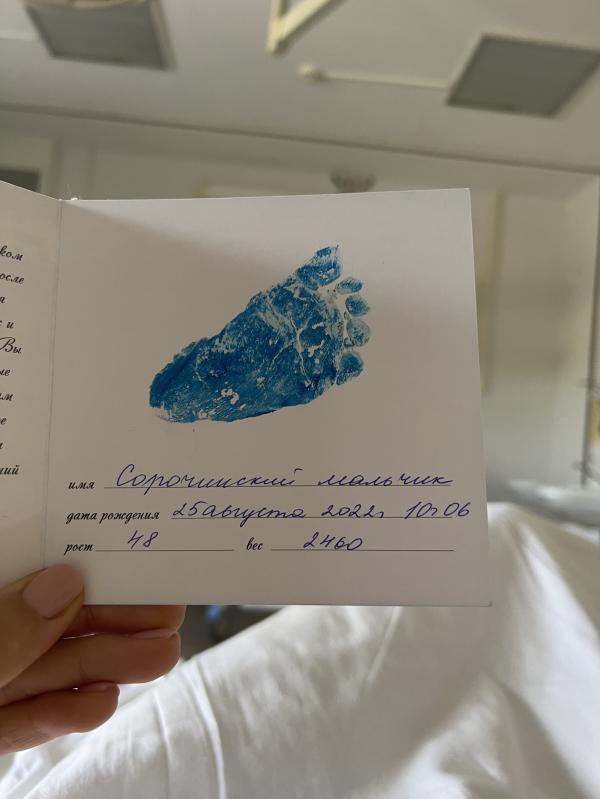 ком
после
я
с и
Вы
ые
им
ое
ний
имя Сорочинский мальчик
дата рождения 25 августа 2022г 10:06
рост 48 вес 2460